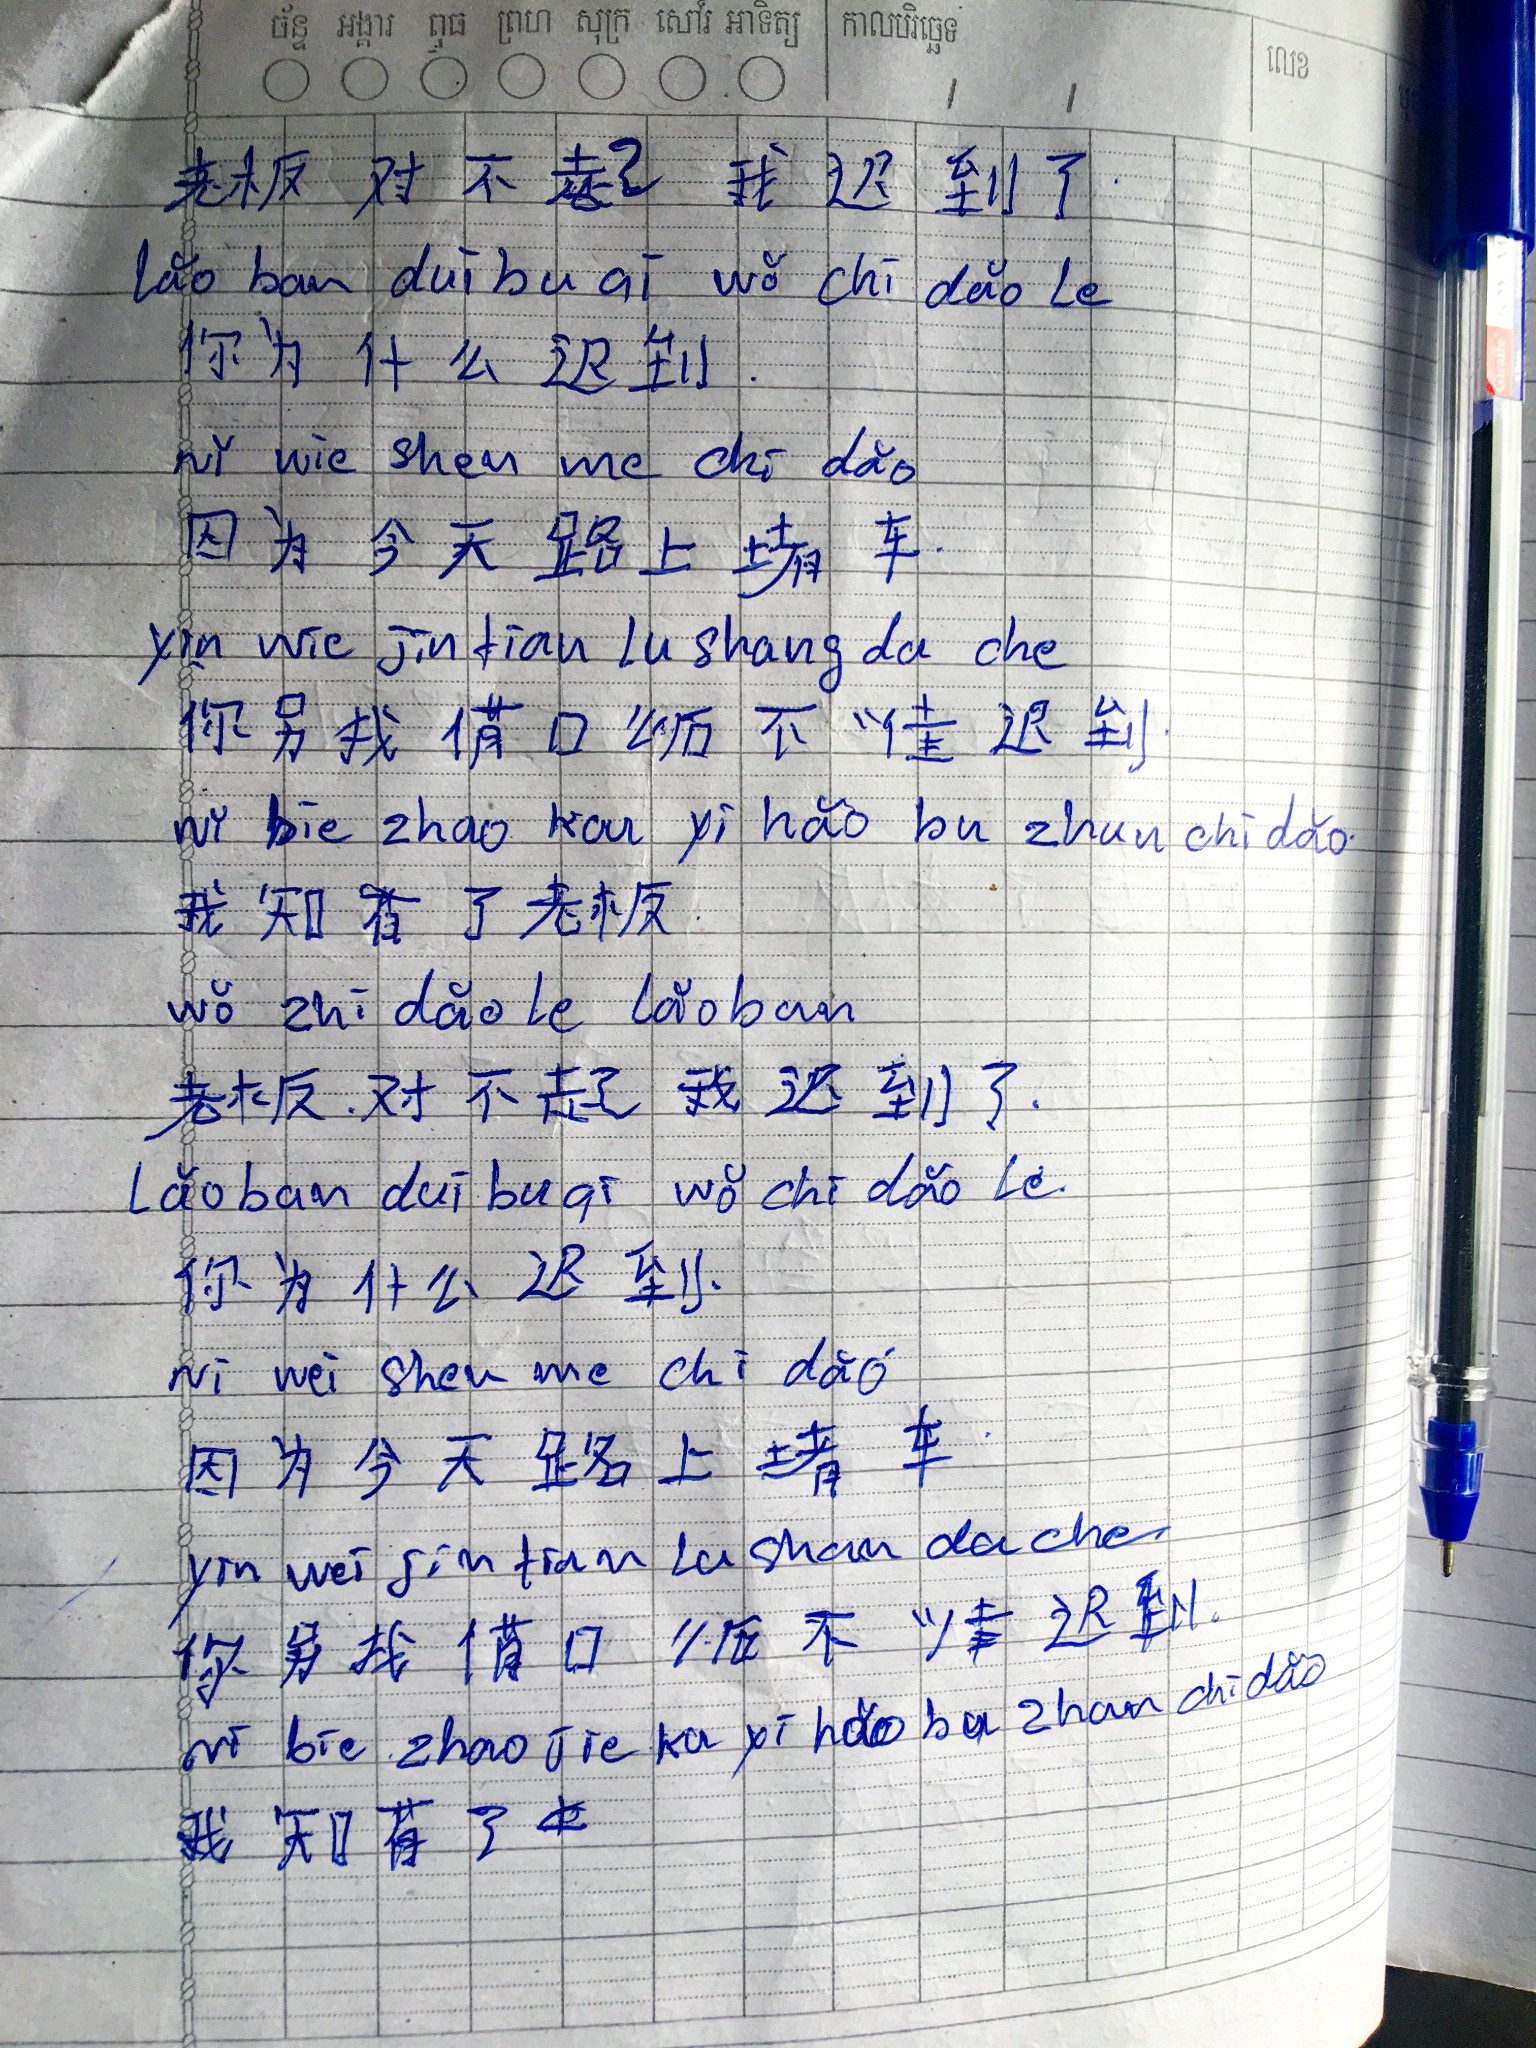 ច័ន្ទ អង្គារ ពុធ ព្រហ សុក្រ សៅរ៍ អាទិត្យ កាលបរិច្ឆេទ
លេខ
老板 对 不 起 我 迟 到 了.
lǎo ban duī bu qi wǒ chī dǎo le
你 为 什 么 迟 到.
nǐ wie shen me chī dǎo
因 为 今 天 路 上 堵 车.
yīn wie jīn tian lu shang da che
你 另 找 借 口 以后 不 准 迟 到.
nǐ bie zhao kou yī hǎo bu zhun chi dǎo.
我 知 道 了 老板.
wǒ zhī dǎo le lǎo ban
老板. 对 不 起 我 迟 到 了.
Lǎo ban duī bu qī wǒ chī dǎo le.
你 为 什 么 迟 到.
nī wei shen me chī dǎo
因 为 今 天 路 上 堵 车.
yin wei jin tian lu shan da che
你 另 找 借 口 以后 不 准 迟 到.
nī bie zhao jie ku yī hǎo bu zhan chī dǎo
我 知 道 了